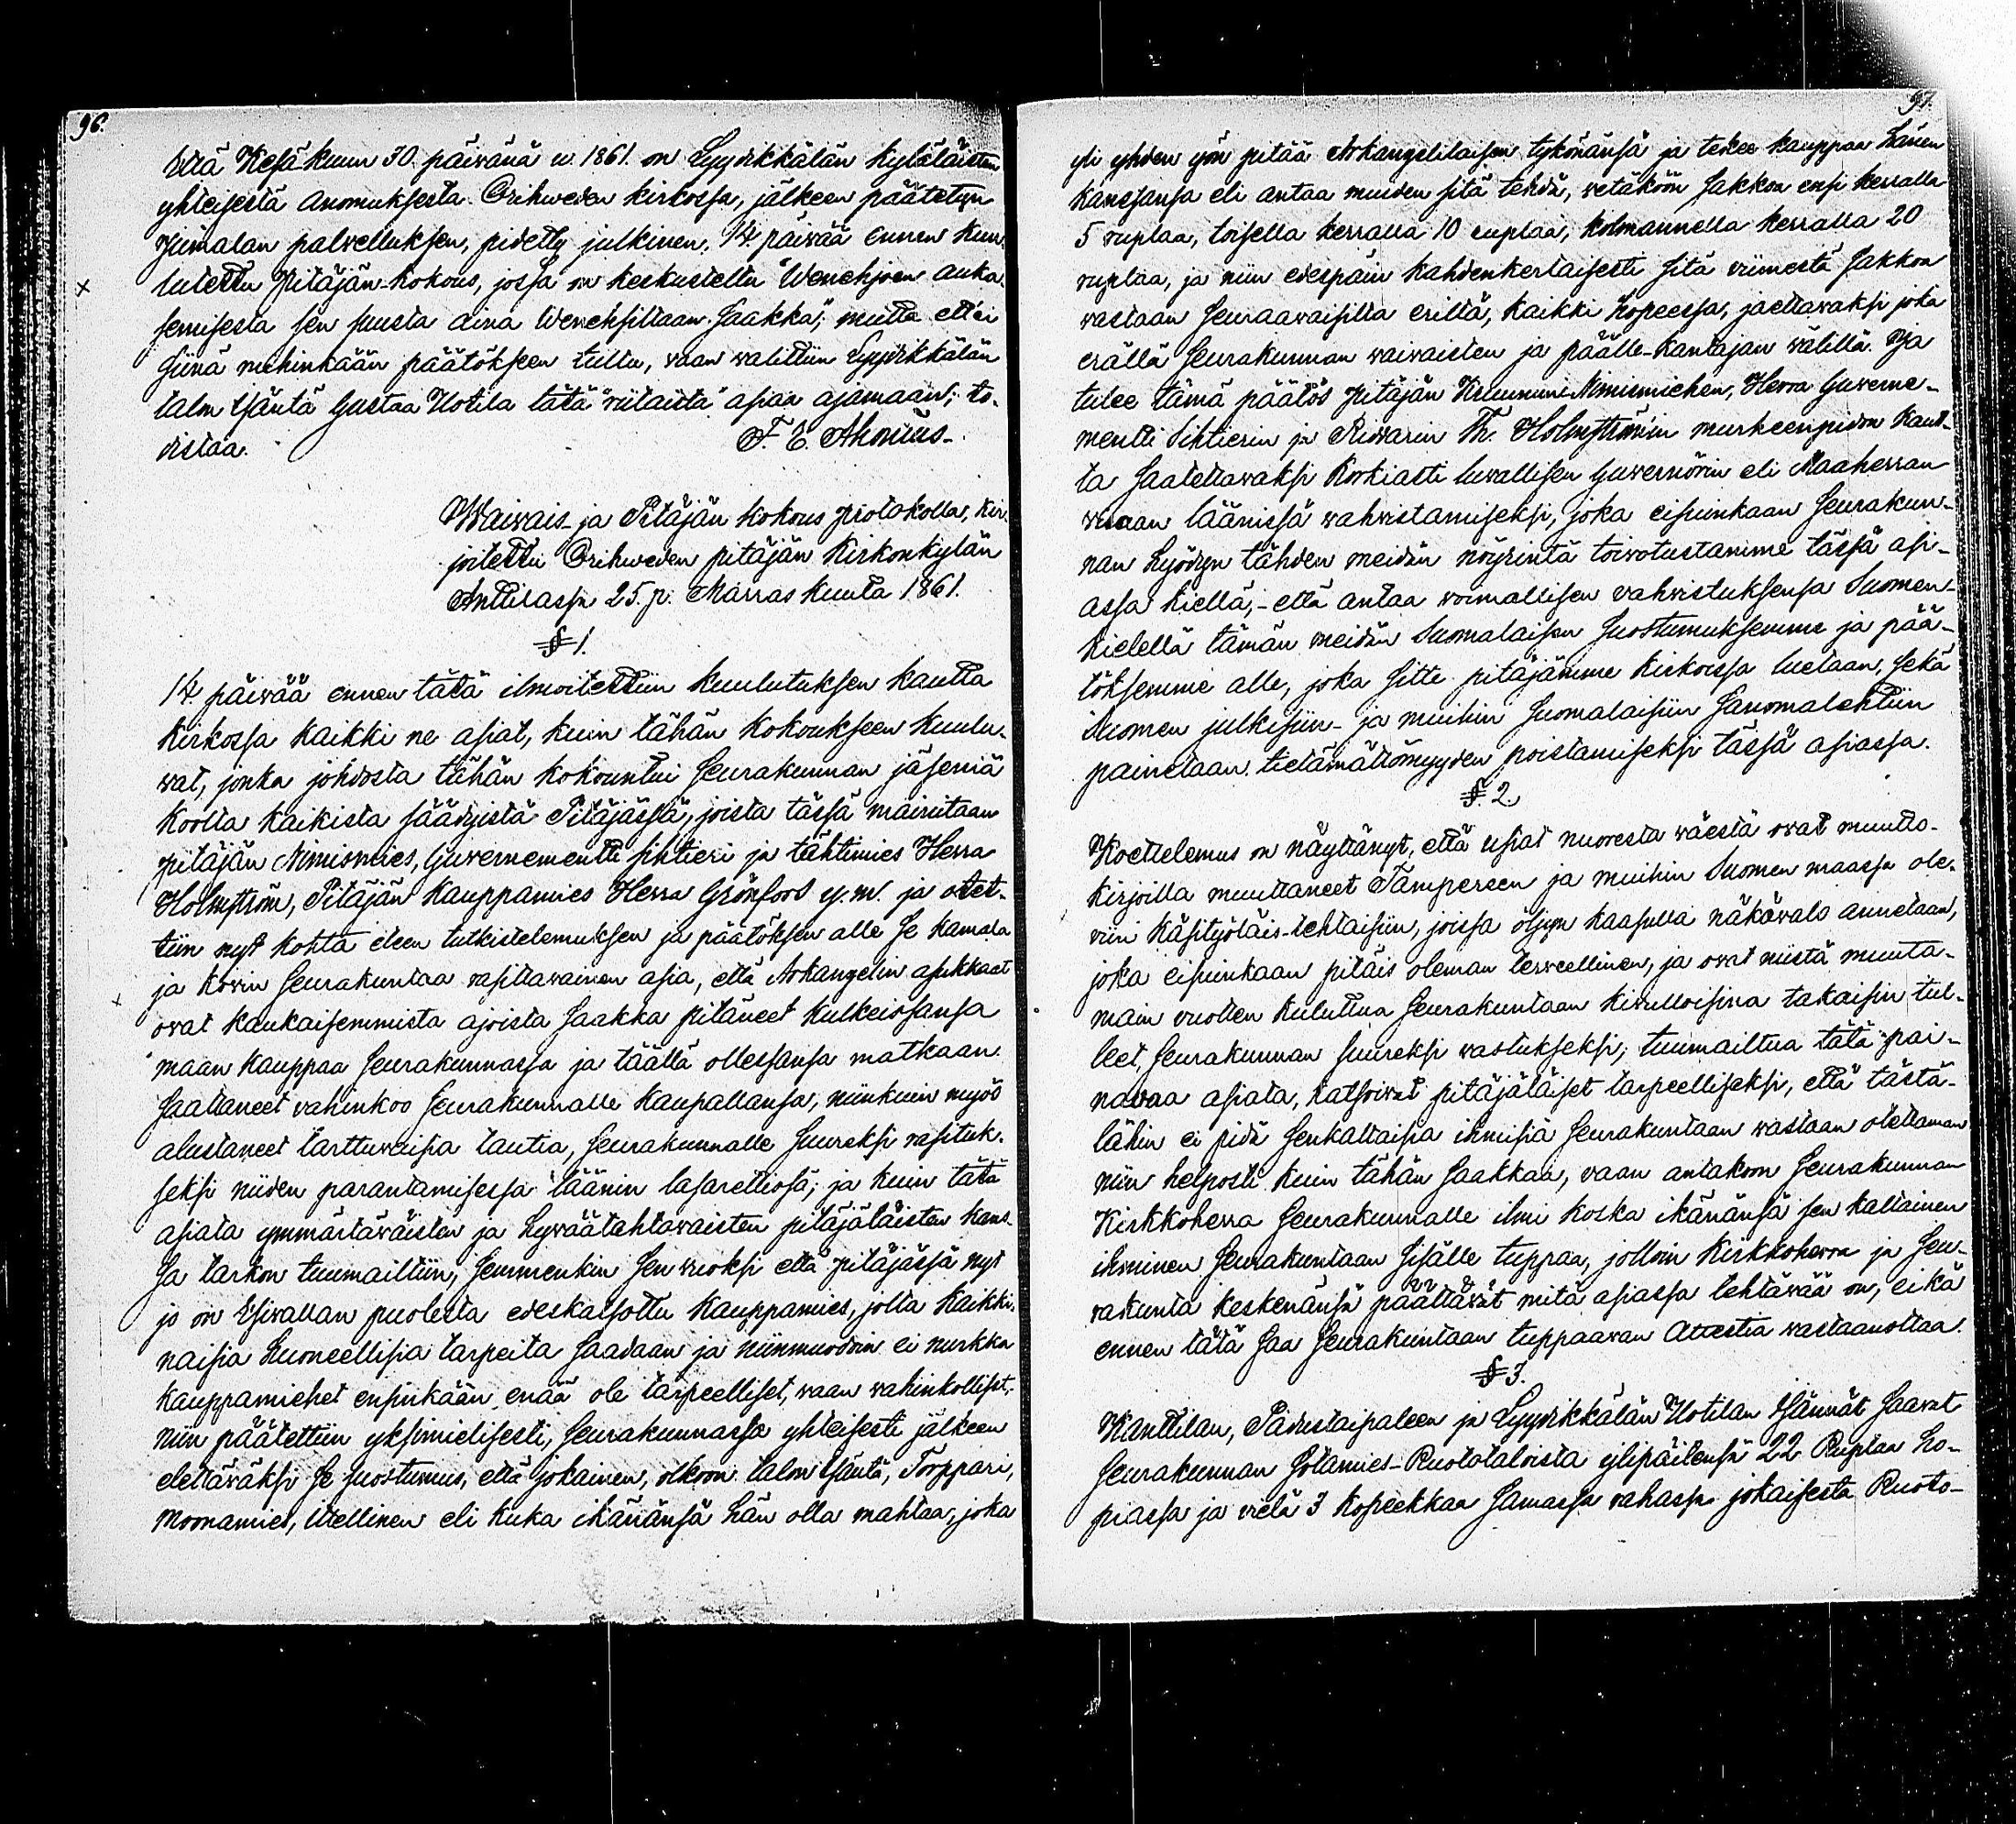 96.
Että Kesäkuun 30. päivänä w. 1861. on Lyyvikkälän kyläläisten
yhteisestä anomuksesta Orihweden kirkossa, jälkeen päätetyn
Jumalan palvelluksen, pidetty julkinen, 14 päivää ennen kuu-
lutettu Pitäjän-kokous, jossa on keskusteltu "Wenehjoen auka-
semisesta sen suusta aina Wenehsiltaan saakka"; mutta ettei
siinä mihinkään päätökseen tultu, vaan valittiin Lyyvikkälän
talon isäntä Gustaa Uotila tätä "riitaista" asiaa ajamaan; to-
distaa.
F. E. Ahonius.
Waivais- ja Pitäjän kokous protokolla, kir-
joitettu Orihweden pitäjän Kirkonkylän
Anttilassa 25. p. Marraskuuta 1861.
§ 1.
14 päivää ennen tätä ilmoitettiin kuulutuksen kautta
kirkossa kaikki ne asiat, kuin tähän kokoukseen kuulu-
vat, jonka johdosta tähän kokountui seurakunnan jäseniä
koolta kaikista säädyistä Pitäjässä, joista tässä mainitaan
pitäjän Nimismies, Guvernementti sihtieri ja tähtimies Herra
Holmström, Pitäjän kauppamies Herra Grönfors y. m. ja otet-
tiin nyt kohta eteen tutkistelemuksen ja päätöksen alle se kamala
ja kovin seurakuntaa rasittavainen asia, että Arkangelin asukkaat
ovat kaukaisemmista ajoista saakka pitäneet kulkeissansa
maan kauppaa seurakunnassa ja täällä ollessansa matkaan
saattaneet vahinkoo seurakunnalle kaupallansa, niinkuin myös
alustaneet tarttuvaisia tautia, seurakunnalle suureksi rasituk-
seksi niiden parantamisessa läänin lasarettiosa; ja kuin tätä
asiata ymmärtäväisten ja hyväätahtavaisten pitäjäläisten kans-
sa tarkon tuumailtiin, semmenkin sen vuoksi että pitäjässä nyt
jo on Esivallan puolesta edeskatsottu kauppamies, jolta kaikki-
naisia luoneellisia tarpeita saadaan ja niinmuodoin ei nurkka
kauppamiehet ensinkään enää ole tarpeelliset, vaan vahinkolliset,
niin päätettiin yksimielisesti, seurakunnassa yhteisesti jälkeen
elettäväksi se suostumus, että jokainen, olkoon talon isäntä, Torppari,
Moonamies, Itellinen eli kuka ikänänsä hän olla mahtaa, joka
97.
yli yhden yön pitää Arkangelilaisen tykönänsä ja tekee kauppaa hänen
kanssansa eli antaa muiden sitä tehdä, vetäköön sakkoa ensi kerralla
5 ruplaa, toisella kerralla 10 ruplaa, kolmannella kerralla 20
ruplaa, ja niin edespäin kahdenkertaisesti sitä viimestä sakkoa
vastaan seuraavaisilta eriltä, kaikki hopeessa, jaettavaksi joka
erällä seurakunnan vaivaisten ja päälle-kantajan välillä. Ja
tulee tämä päätös pitäjän Kruununi-Nimismiehen, Herra Guverne-
mentti Sihtierin ja Riddarin Th. Holmströmin murheenpidon kaut-
ta saatettavaksi Korkiasti luvallisen Guvernörin eli Maaherran
vivaan läänissä vahvistamiseksi, joka eisuinkaan seurakun-
nan hyödyn tähden meidän nöyrintä toivotustamme tässä asi-
assa kiellä, että antaa voimallisen vahvistuksensa Suomen-
kielellä tämän meidän Suomalaisen suostumuksemme ja pää-
töksemme alle, joka sitte pitäjämme kirkoissa luetaan, sekä
Suomen julkisiin- ja muihin suomalaisiin sanomalehtiin
painetaan tietämättömyyden poistamiseksi tässä asiassa.
§ 2.
Koettelemus on näyttänyt, että usiat nuoresta väestä ovat muutto-
kirjoilla muuttaneet Tampereen ja muihin Suomen maassa ole-
viin käsityöläis-tehtaisiin, joissa öljyn kaasulla näkövalo annetaan,
joka eisuinkaan pitäis oleman terveellinen, ja ovat niistä muuta-
main vuotten kuluttua seurakuntaan kivulloisina takaisin tul-
leet, seurakunnan suureksi vastukseksi; tuumailtua tätä pai-
navaa asiata, katsoivat pitäjäläiset tarpeelliseksi, että tästä-
lähin ei pidä senkaltaisia ihmisiä seurakuntaan vastaan otettaman
niin helposti kuin tähän saakkaa, vaan antakoon seurakunnan
Kirkkoherra seurakunnalle ilmi koska ikänänsä sen kaltainen
ihminen seurakuntaan sisälle tuppaa, jolloin Kirkkoherra ja seu-
rakunta keskenänsä päättävät mitä asiassa tehtävää on, eikä
ennen tätä saa seurakuntaan tuppaavan attestia vastaanottaa.
§ 3.
Kanttilan, Pädustaipaleen ja Lyyvikkälän Uotilan isännät saavat
seurakunnan Sotamies-Ruotataloista ylipäitensä 22 Ruplaa ho-
piassa ja vielä 3 kopeekkaa samassa rahassa jokaisesta Ruoto-